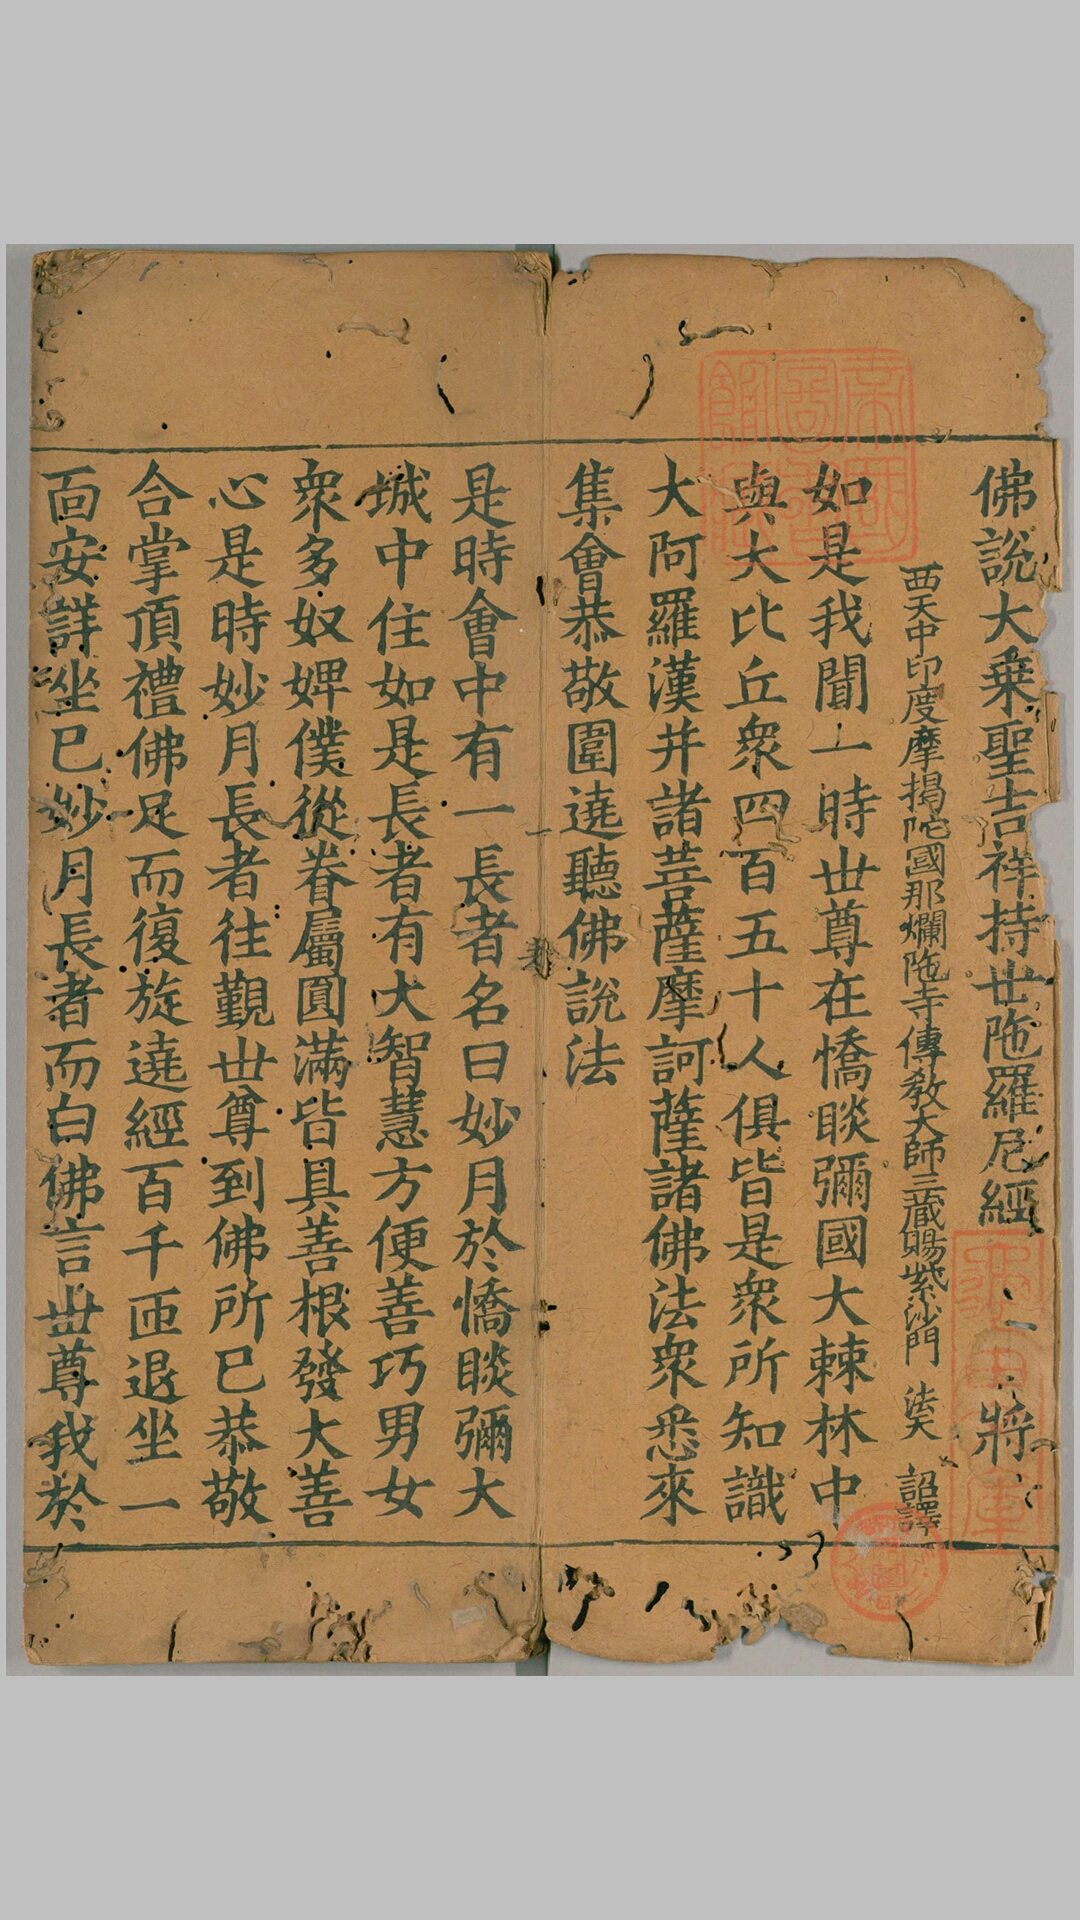 佛說大乗聖吉祥持世陁羅尼經 二 將
西天中印度摩揭陀國那爛陁寺傳教大師三藏賜紫沙門 法天 詔譯
如是我聞一時世尊在憍睒彌國大棘林中
與大比丘衆四百五十人俱皆是衆所知識
大阿羅漢并諸菩薩摩訶薩諸佛法衆悉來
集會恭敬圍遶聽佛說法
是時會中有一長者名曰妙月於憍睒彌大
城中住如是長者有大智慧方便善巧男女
衆多奴婢僕從眷屬圓滿皆具善根發大善
心是時妙月長者往觀世尊到佛所已恭敬
合掌頂禮佛足而復旋遶經百千匝退坐一
面安詳坐已妙月長者而白佛言世尊我於